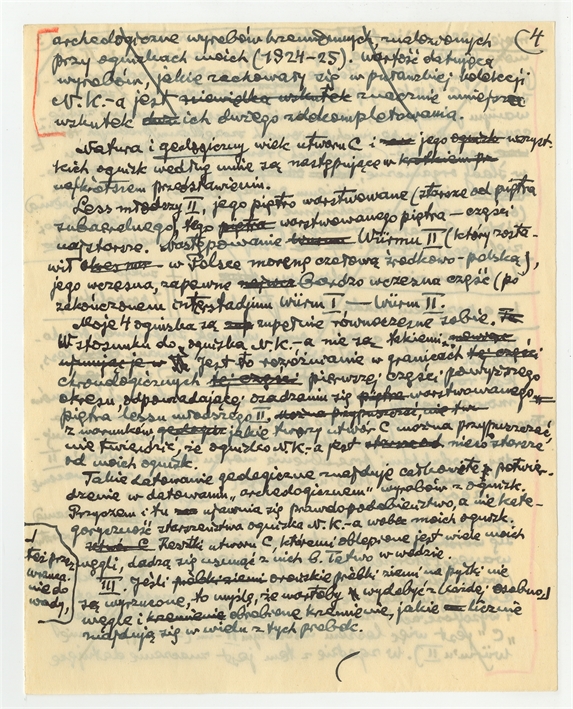 (4
archeologiczne wyrobów krzemiennych, znalezionych
przy ogniskach moich (1924-25). Wartość datująca
wyrobów, jakie zachowały się w puławskiej kolekcji
N. K.-a jest niewielka wskutek znacznie mniejsza
wskutek ich dużego zdekompletowania.
Natura i geologiczny wiek utworu C i jego ognisk wszyst-
kich ognisk według mnie są następujące w
najkrótszem przedstawieniu.
Less młodszy II, jego piętro warstwowane (starsze od piętra
subaeralnego), tego piętra warstwowanego piętra — części
najstarsze. Występowanie Würmu II (który zosta-
wił w Polsce morenę czołową środkowo-polską),
jego wczesna, zapewne bardzo wczesna część (po
zakończonem interstadjum Würm I — Würm II.
Moje 4 ogniska są zupełnie równoczesne sobie.
W stosunku do ogniska N. K.-a nie są takiemi,
Jest to rozróżnianie w granicach tej części
chronologicznych tej części pierwszej części powyższego
okresu odpowiadającej osadzaniu się piętra warstwowanego
piętra lessu młodszego II.
Z warunków, jakie tworzy utwór C można przypuszczać,
nie twierdzić, że ognisko N. K.-a jest starsze od nieco starsze
od moich ognisk.
Takie datowanie geologiczne znajduje całkowite potwier-
dzenie w datowaniu „archeologicznem” wyrobów z ognisk.
Przyczem i tu ujawnia się prawdopodobieństwo, a nie kate-
goryczność starszeństwa ogniska N. K.-a wobec moich ognisk.
utwór C Resztki utworu C, któremi oblepione jest wiele moich
węgli, dadzą się usunąć z nich b. łatwo w wodzie.
tej przez
wrzuca-
nie do
wody,
III. Jeśli próbki ziemi na pyłki nie
są wyrzucone, to myślę, że warto by wydobyć z każdej osobno
węgle i krzemienie obrobione krzemienie, jakie licznie
znajdują się w wielu z tych próbek.